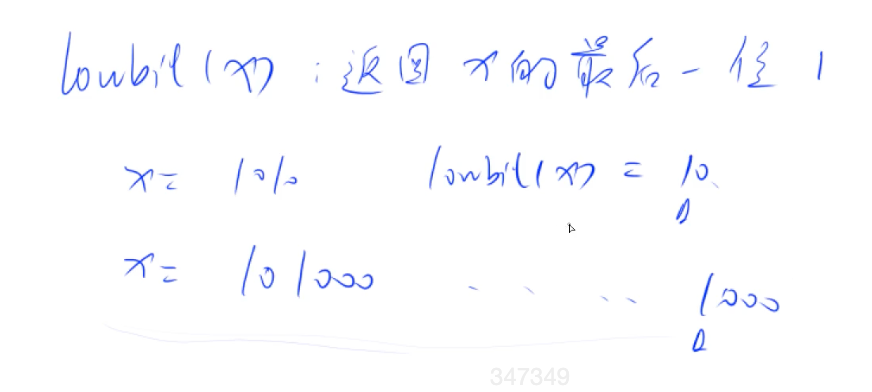 lowbit(x) : 返回 x 的最后一位 1
x = 1010 lowbit(x) = 10
x = 101000 . . . . 1000
347349